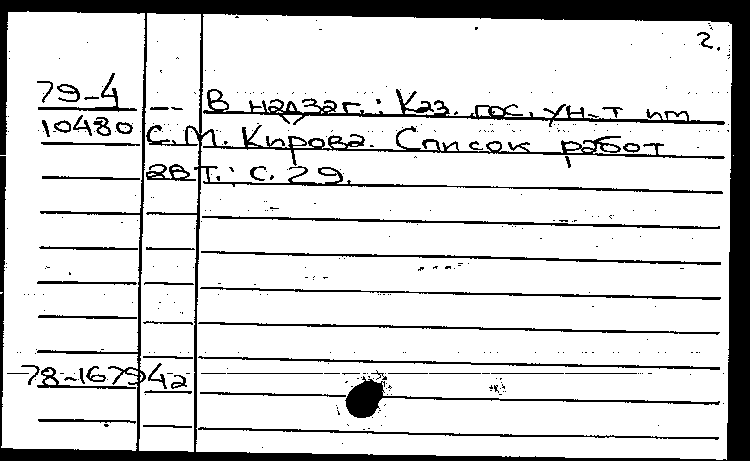 2.
79-4 -- В надзаг.: Каз. гос. ун-т им.
10480 С.М. Кирова. Список работ
авт.: с. 29.
78-167942